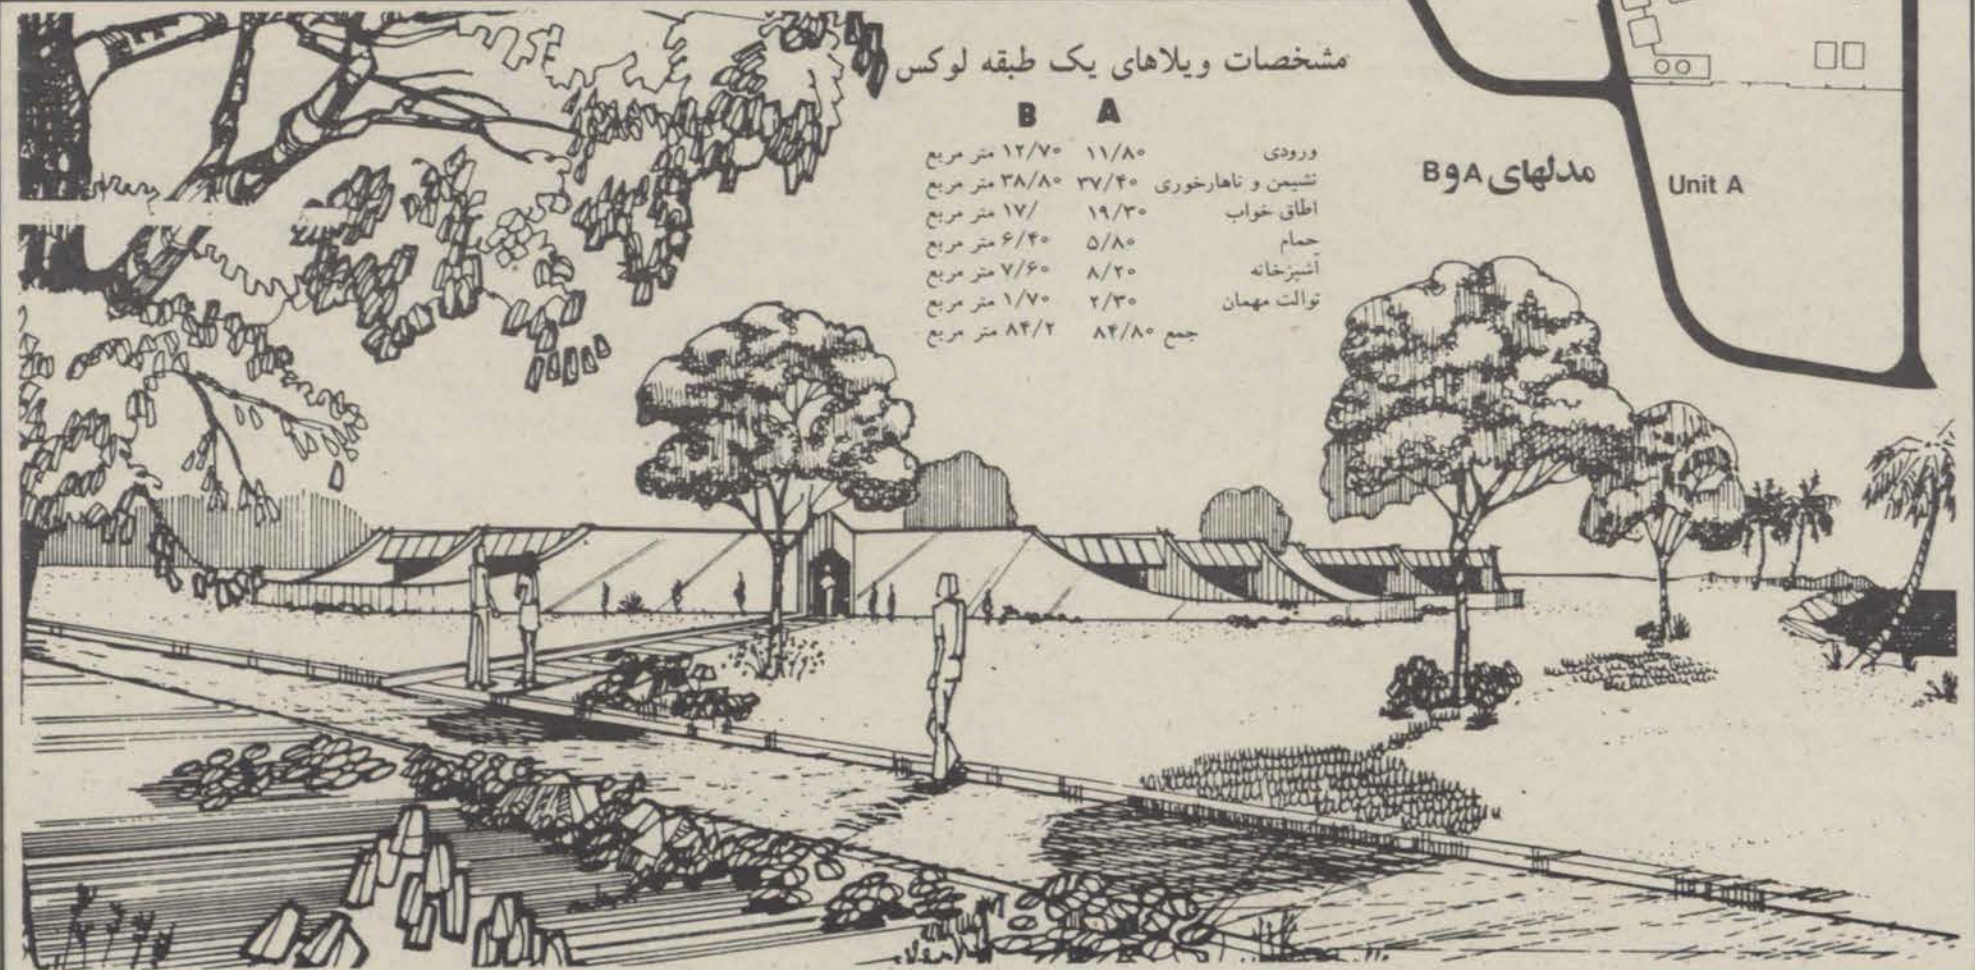 مشخصات ویلاهای یک طبقه لوکس
A B
ورودی ۱۱/۸۰ ۱۲/۷۰ متر مربع
نشیمن و ناهارخوری ۳۷/۴۰ ۳۸/۸۰ متر مربع
اطاق خواب ۱۹/۳۰ ۱۷/ متر مربع
حمام ۵/۸۰ ۶/۴۰ متر مربع
آشپزخانه ۸/۲۰ ۷/۶۰ متر مربع
توالت مهمان ۲/۳۰ ۱/۷۰ متر مربع
جمع ۸۴/۸۰ ۸۴/۲ متر مربع
مدلهای A و B
Unit A